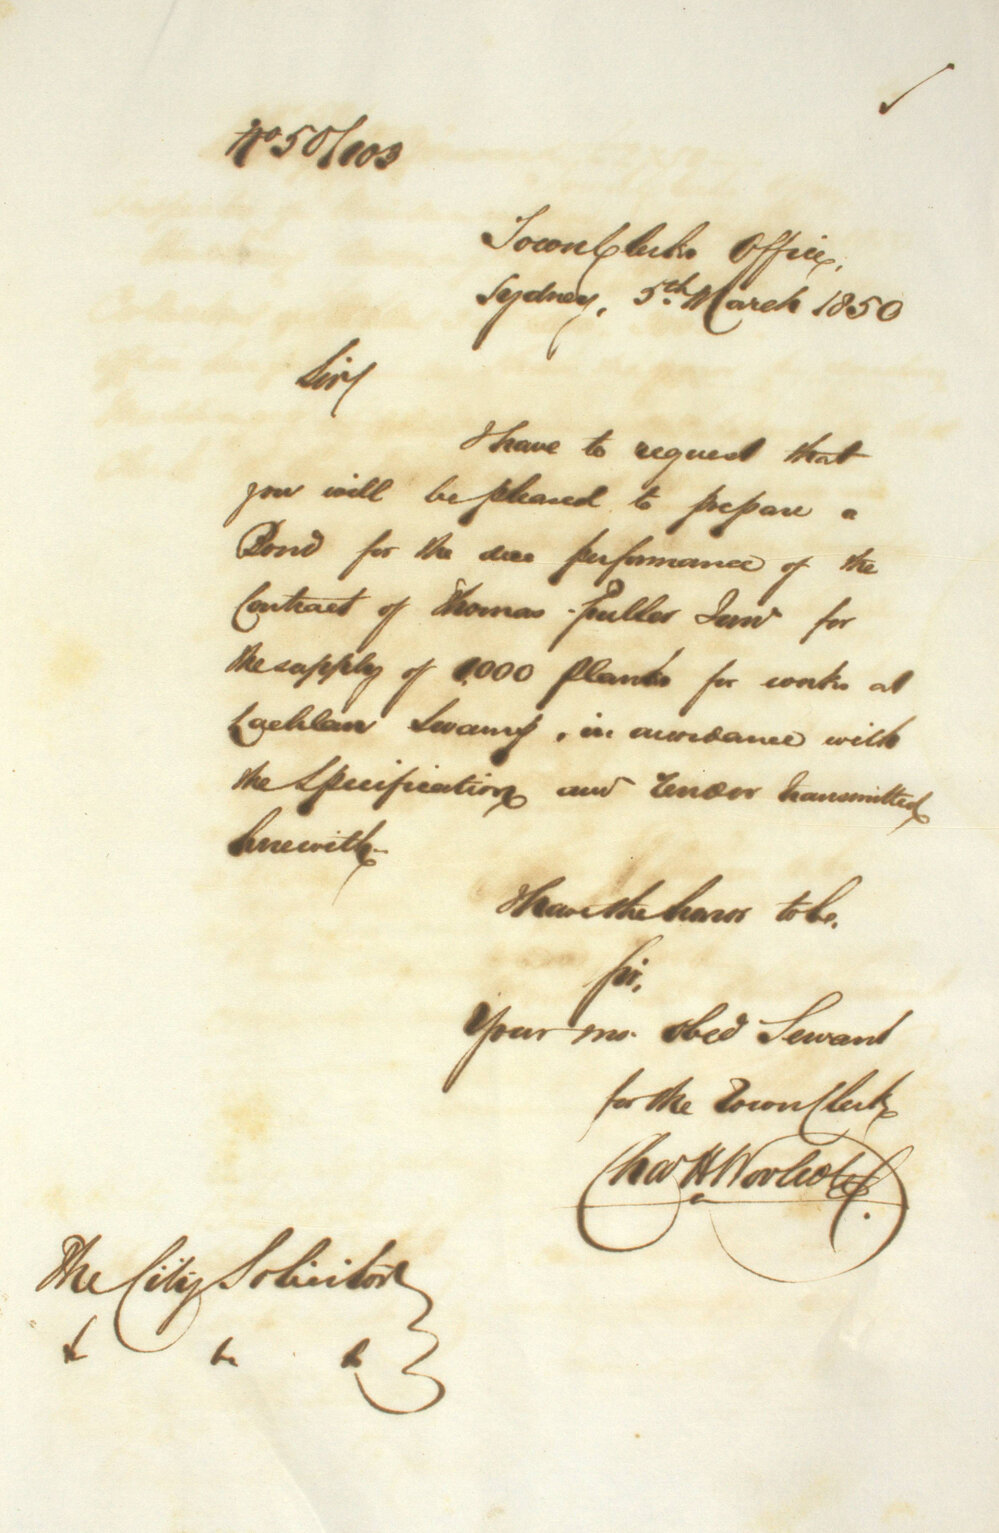 No 50/103
Town Clerks Office,
Sydney, 5th March 1850
Sir,
I have to request that
you will be pleased to prepare a
Bond for the due performance of the
Contract of Thomas Fuller Junr for
the supply of 1000 Planks for works at
Lachlan Swamp, in accordance with
the Specification and Tender transmitted
herewith.
I have the honor to be,
Sir,
Your mo. obed Servant
for the Town Clerk
Chas H Woolcott.
The City Solicitor
&c &c &c